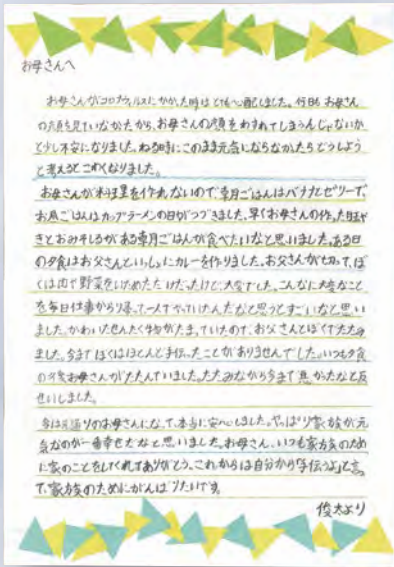 お母さんへ
お母さんがコロナウィルスにかかった時はとても心配しました。何日もお母さん
の顔を見ていなかったから、お母さんの顔をわすれてしまうんじゃないか
と少し不安になりました。ねる時にこのまま元気にならなかったらどうしよう
と考えるとこわくなりました。
お母さんが料理を作れないので、朝ごはんはバナナとゼリーで、
お昼ごはんはカップラーメンの日がつづきました。早くお母さんの作った玉子や
きとおみそしるがある朝ごはんが食べたいなと思いました。ある日
の夕食はお父さんといっしょにカレーを作りました。お父さんが切って、ぼ
くは肉や野菜をいためただけだったけど、大変でした。こんなに大変なこと
を毎日仕事から帰って、一人でやっていたんだなと思うとすごいなと思い
ました。かわいたせんたく物がたまっていたので、お父さんとぼくでたたみ
ました。今までぼくはほとんど手伝ったことがありませんでした。いつも夕食
の後お母さんがたたんでいました。たたみながら今まで悪かったなと反
せいしました。
今は元通りのお母さんになって、本当に安心しました。やっぱり家族が元
気なのが一番幸せだなと思いました。お母さん、いつも家族のため
に家のことをしてくれてありがとう。これからは自分から「手伝うよ」と言っ
て、家族のためにがんばりたいです。
俊太より